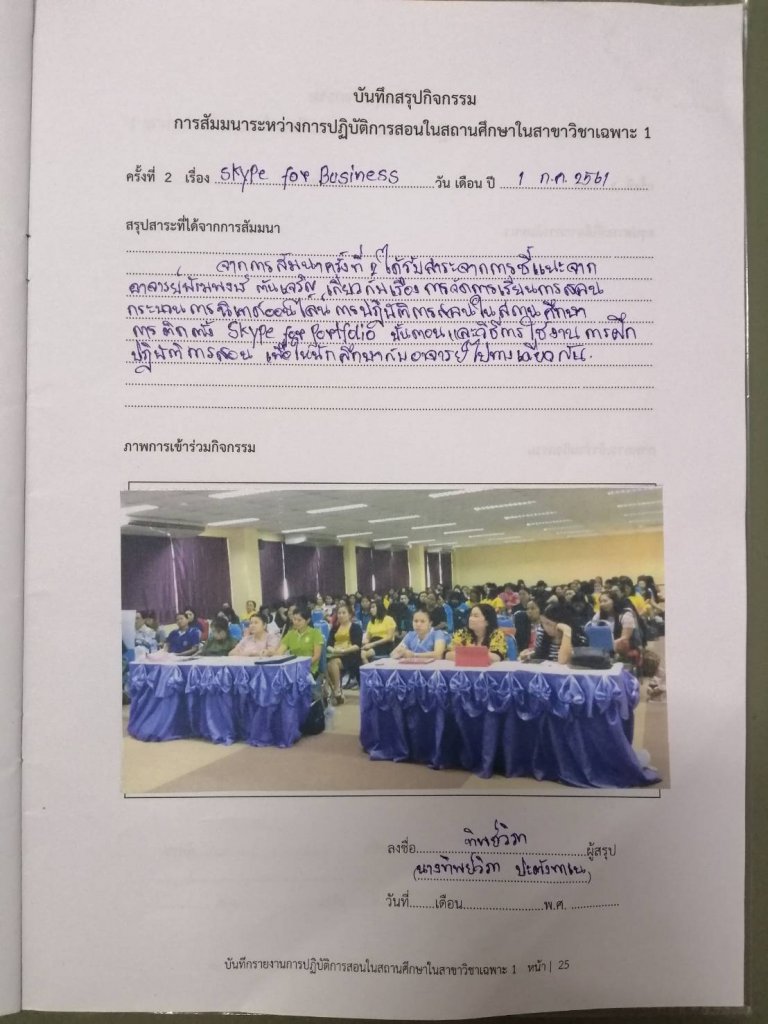 บันทึกสรุปกิจกรรม
การสัมมนาระหว่างการปฏิบัติการสอนในสถานศึกษาในสาขาวิชาเฉพาะ 1
ครั้งที่ 2 เรื่อง Skype for Business วัน เดือน ปี 1 ก.ค. 2561
สรุปสาระที่ได้จากการสัมมนา
จากการสัมนาครั้งที่ 2 ได้รับสาระจากการชี้แนะจาก
อาจารย์ ตันเจริญ เกี่ยวกับเรื่อง การจัดการเรียนการสอน
กระบวนการนิเทศออนไลน์ การปฏิบัติการสอนในสถานศึกษา
การติดตั้ง Skype for Portfolio ขั้นตอนและวิธีการใช้งาน การฝึก
ปฏิบัติการสอน เพื่อให้นักศึกษากับอาจารย์ไปทางเดียวกัน.
ภาพการเข้าร่วมกิจกรรม
ลงชื่อ ทิพย์วิภา ผู้สรุป
(นางทิพย์วิภา )
วันที่........เดือน........................พ.ศ. ..............
บันทึกรายงานการปฏิบัติการสอนในสถานศึกษาในสาขาวิชาเฉพาะ 1 หน้า | 25